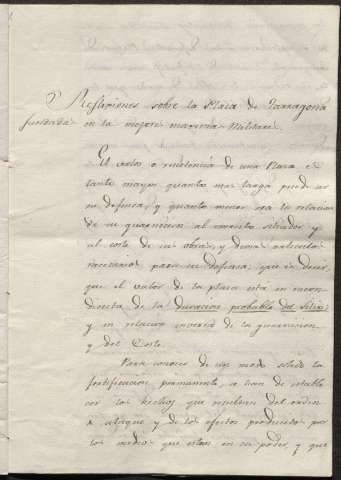 Reflexiones sobre la Plaza de Tarragona
fundadas en la mejor maxima Militar.
El valor o resistencia de una Plaza es
tanto mayor quanto mas larga puede ser
su defensa, y quanto menor sea la relacion
de su guarnicion al exercito sitiador y
al coste de sus obras, y demas articulos
necesarios para su defensa, que es decir,
que el valor de la plaza esta en razon
directa de la duracion probable del sitio,
y en relacion inversa de la guarnicion
y del Coste.
Para conocer de un modo solido la
fortificacion permanente, se han de estable
cer los hechos que resultan del orden
de ataque y de los efectos producidos por
los medios que estan en su poder, y que